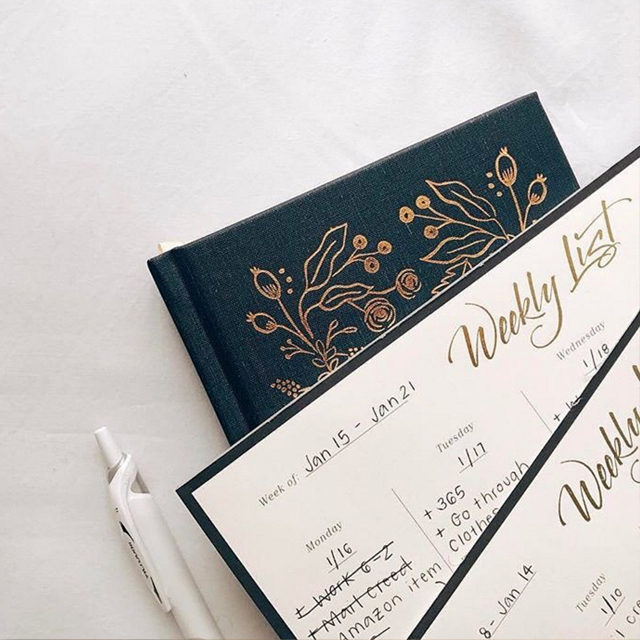 Weekly List
Week of: Jan 15 - Jan 21
Monday
1/16
+ Work 6-2
+ Mail Creed
Amazon item
Tuesday
1/17
+ 365
+ Go through
Clothes
Wednesday
1/18
Weekly
8- Jan 14
Tuesday
1/10